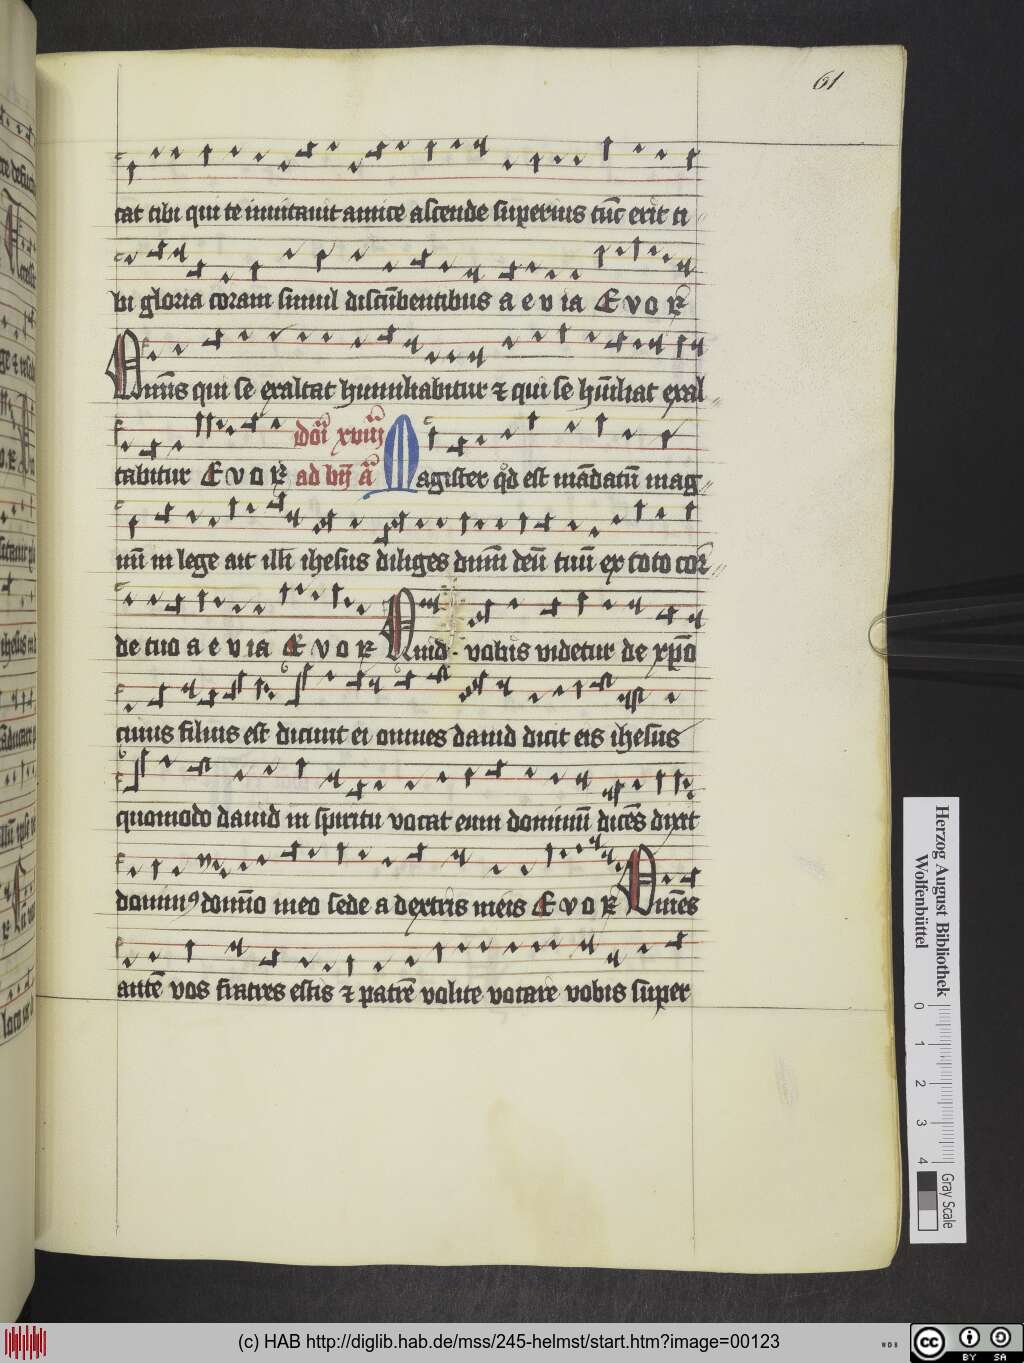 61
tat tibi qui te inuitauit amice ascende superius tūc erit ti
bi gloria coram simul discūbentibus a e v ia E v o R
Omīs qui se exaltat humiliabitur ⁊ qui se hūiliat exal
tabitur E v o R ad bn̄ a Magister qd est mādatū mag
nū in lege ait illi ihesus diliges dnm̄ deū tuū ex toto cor
de tuo a e v ia E v o R Quid vobis videtur de xpō
cuius filius est dicunt ei omnes dauid dicit eis ihesus
quomodo dauid in spiritu vocat eum dominū dicēs dixit
dominꝯ domīo meo sede a dextris meis E v o R Omēs
autē vos fratres estis ⁊ patrē volite vocare vobis super
Herzog August Bibliothek
Wolfenbüttel
0 1 2 3 4
Gray Scale
(c) HAB http://diglib.hab.de/mss/245-helmst/start.htm?image=00123
WDB
cc BY SA